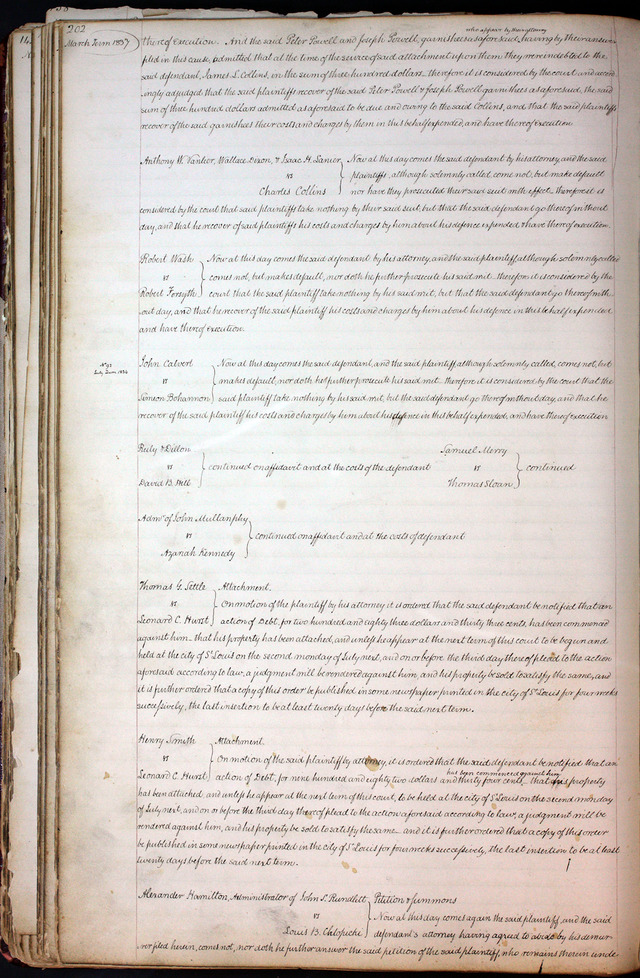 202
March Term 1837
who appear by their attorney
thereof execution. And the said Peter Powell and Joseph Powell, garnishees as aforesaid, having by their answer
filed in this cause, admitted that at the time of the service of said attachment upon them they were indebted to the
said defendant, James L. Collins, in the sum of three hundred dollars. therefore it is considered by the court and accord
ingly adjudged that the said plaintiffs recover of the said Peter Powell & Joseph Powell, garnishees as aforesaid, the said
sum of three hundred dollars admitted as aforesaid to be due and owing to the said Collins, and that the said plaintiffs
recover of the said garnishees their costs and charges by them in this behalf expended, and have thereof execution.
Anthony W. Vanlier, Wallace Dixon, & Isaac H. Lanier Now at this day comes the said defendant by his attorney, and the said
vs plaintiffs, although solemnly called, come not, but make default
Charles Collins nor have they prosecuted their said suit with effect. therefore it is
considered by the court that said plaintiffs take nothing by their said suit, but that the said defendant go thereof without
day, and that he recover of said plaintiffs his costs and charges by him about his defence expended & have thereof execution.
Robert Wash Now at this day comes the said defendant by his attorney, and the said plaintiff although solemnly called
vs comes not, but makes default, nor doth he further prosecute his said suit. therefore it is considered by the
Robert Forsyth court that the said plaintiff take nothing by his said suit, but that the said defendant go thereof with-
out day, and that he recover of the said plaintiff his costs and charges by him about his defence in this behalf expended
and have thereof execution.
July Term 1834
John Calvert Now at this day comes the said defendant, and the said plaintiff although solemnly called, comes not, but
vs makes default, nor doth he further prosecute his said suit. therefore it is considered by the court that the
Simeon Bohannon said plaintiff take nothing by his said suit, but the said defendant go thereof without day, and that he
recover of the said plaintiff his costs and charges by him about his defence in this behalf expended, and have thereof execution
Rely & Dillon Samuel Merry
vs continued on affidavit and at the costs of the defendant vs continued
David B. Hill Thomas Sloan
Admr of John Mullanphy
vs continued on affidavit and at the costs of defendant
Azanah Kennedy
Thomas G. Settle Attachment.
vs On motion of the plaintiff by his attorney it is ordered that the said defendant be notified that an
Leonard C. Hurst action of Debt, for two hundred and eighty three dollars and thirty three cents, has been commenced
against him. that his property has been attached, and unless he appear at the next term of this court to be begun and
held at the city of St. Louis on the second monday of July next, and on or before the third day thereof plead to the action
aforesaid according to law, a judgment will be rendered against him, and his property be sold to satisfy the same, and
it is further ordered that a copy of this order be published in some newspaper printed in the city of St. Louis for four weeks
successively, the last insertion to be at least twenty days before the said next term.
Henry Smith Attachment.
vs On motion of the said plaintiff by attorney, it is ordered that the said defendant be notified that an
has been commenced against him,
Leonard C. Hurst action of Debt, for nine hundred and eighty two dollars and thirty four cents, that his property
has been attached, and unless he appear at the next term of this court, to be held at the city of St. Louis on the second monday
of July next, and on or before the third day thereof plead to the action aforesaid according to law, a judgment will be
rendered against him, and his property be sold to satisfy the same. and it is further ordered that a copy of this order
be published in some newspaper printed in the city of St. Louis for four weeks successively, the last insertion to be at least
twenty days before the said next term.
Alexander Hamilton, Administrator of John S. Rundlett Petition & Summons
vs Now at this day comes again the said plaintiff, and the said
Louis B. defendant's attorney having agreed to abide by his demur-
rer filed herein, comes not, nor doth he further answer the said petition of the said plaintiff, who remains therein unde